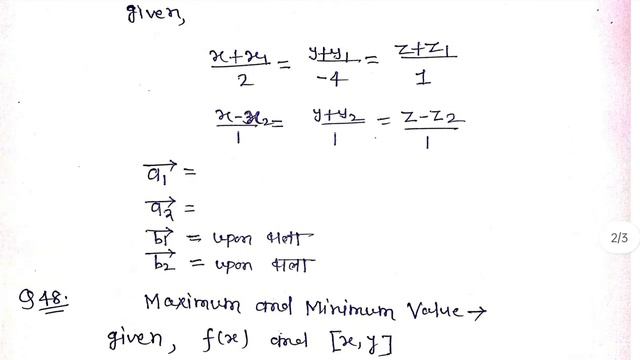 given,
x+x1/2 = y+y1/-4 = z+z1/1
x-x2/1 = y+y2/1 = z-z2/1
a1→ =
a2→ =
b1→ = upon वाला
b2→ = upon वाला
Q 48. Maximum and Minimum Value →
given, f(x) and [x,y]
2/3